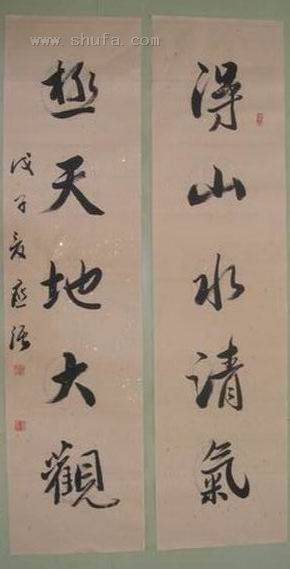 得山水清氣
極天地大觀
戊子夏
www.shufa.com